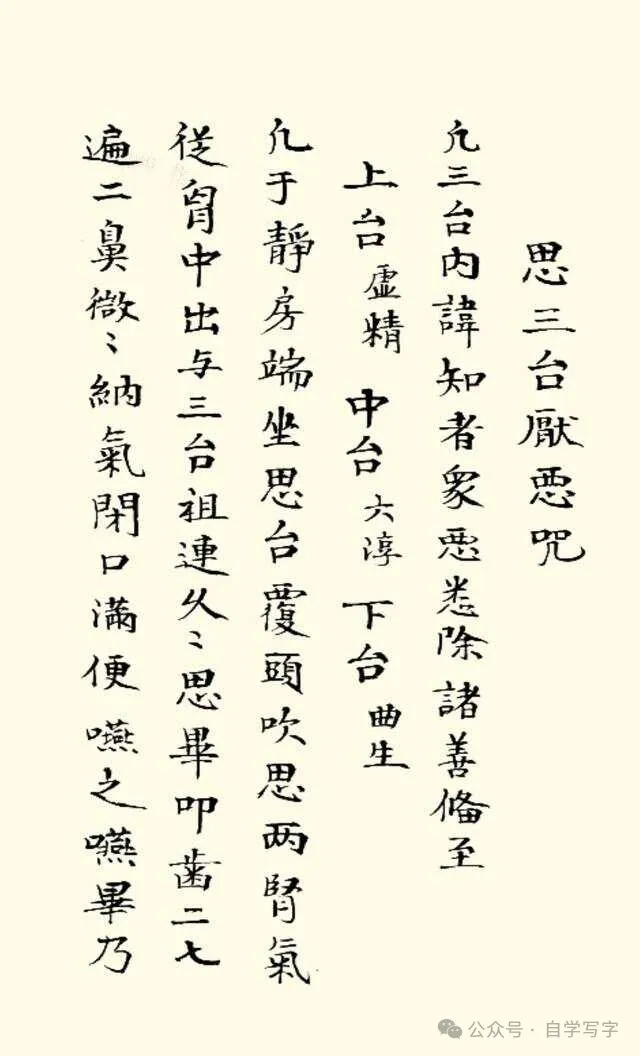 思三台厭悪咒
凡三台内諱知者衆悪悉除諸善俻至
上台虛精 中台六淳 下台曲生
凡于靜房端坐思台覆頭吹思两腎氣
從胷中出与三台祖連久〻思畢叩歯二七
遍二鼻微〻納氣閉口滿便嚥之嚥畢乃
公众号·自学写字